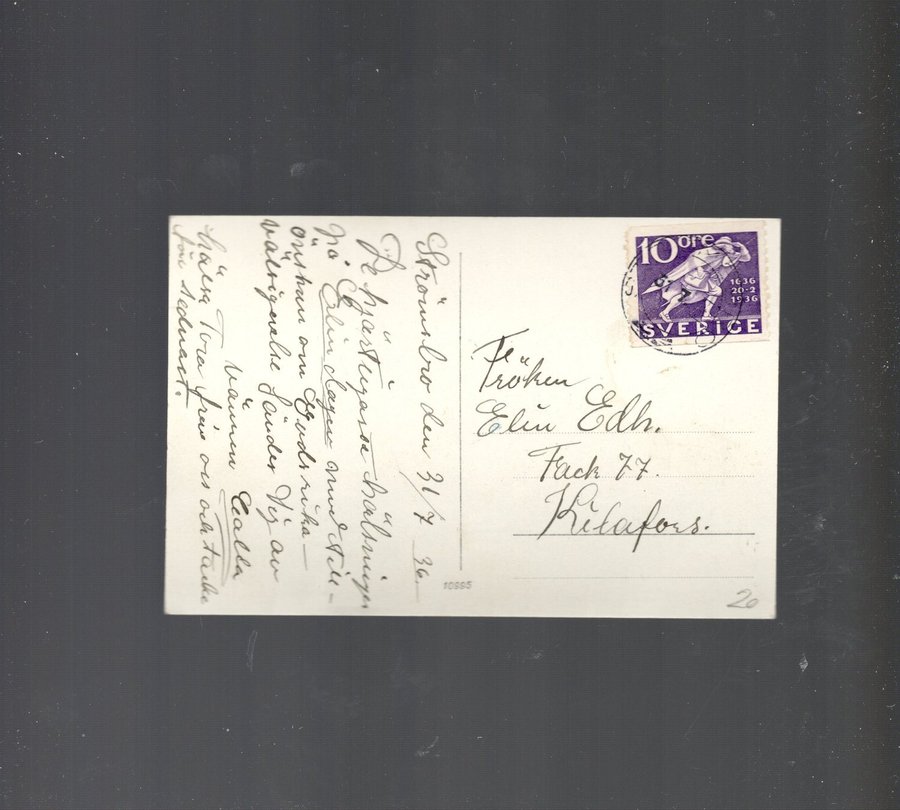 Strömsbro den 31/7 36.
De hjärtligaste hälsningar
på Elin dagen med till-
önskan om Guds rika
välsignelse sänder Dig av
vännen Calla
hälsa Tora från oss och tacka
för sednast.
10 öre
1636
20-2
1936
SVERIGE
Fröken
Elin Edh.
Fack 77.
Kilafors.
10995
20